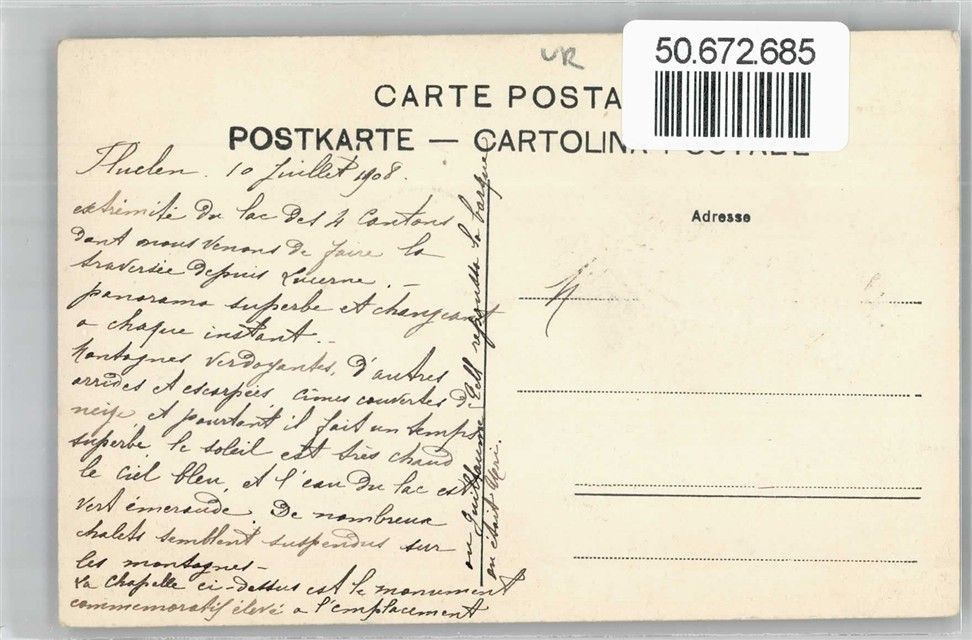 UR
50.672.685
CARTE POSTA
POSTKARTE — CARTOLINA POSTALE
Adresse
Fluelen. 10 Juillet 1908.
extrémité du lac des 4 Cantons
dont nous venons de faire la
traversée depuis Lucerne. –
panorama superbe et changeant
a chaque instant...
Montagnes verdoyantes, d'autres
arrides et escarpées, cimes couvertes de
neige et pourtant il fait un temps
superbe le soleil est très chaud
le ciel bleu, et l'eau du lac est
vert émeraude. De nombreux
chalets semblent suspendus sur
les montagnes –
La chapelle ci-dessus est le monument
commemoratif élevé a l'emplacement
ou Guillaume Tell repoussa la barque
ou était